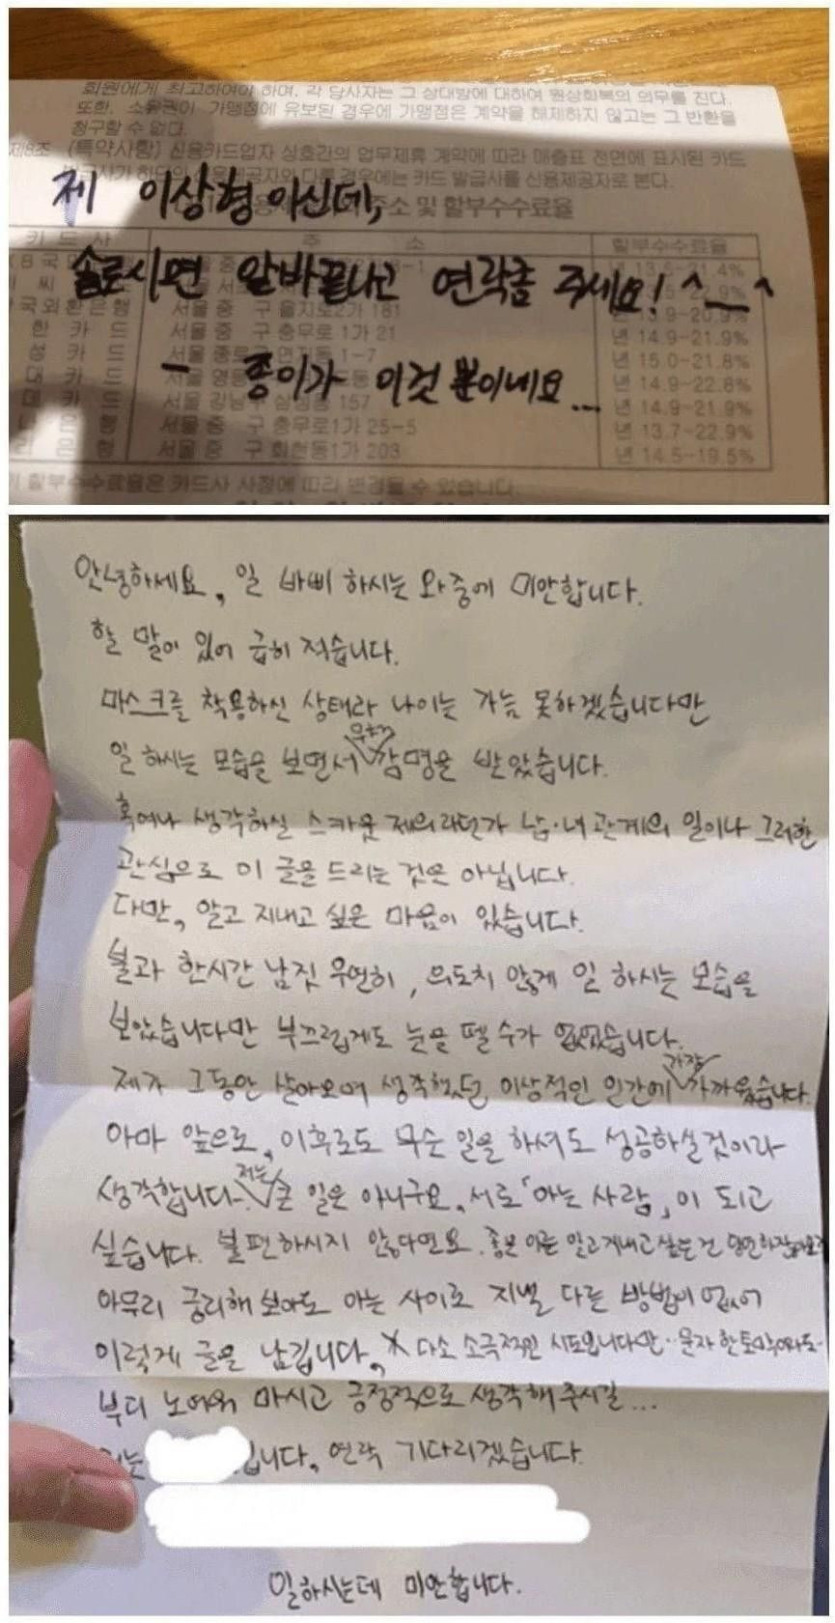 회원에게 최고하여야 하며, 각 당사자는 그 상대방에 대하여 원상회복의 의무를 진다.
또한, 소유권이 가맹점에 유보된 경우에 가맹점은 계약을 해제하지 않고는 그 반환을
청구할 수 없다.
(특약사항) 신용카드업자 상호간의 업무제휴 계약에 따라 매출표 전면에 표시된 카드
다른 경우에는 카드 발급사를 신용제공자로 본다.
주소 및 할부수수료율
제 이상형이신데,
카 드 사 주 소 할부수수료율
솔로시면 알바끝나고 연락좀 주세요! ^__^
국외환은행 서울 중 구 을지로2가 181
한 카 드 서울 중 구 충무로 1가 21 년 14.9-21.9%
성 카 드 1-7 년 15.0-21.8%
- 종이가 이것 뿐이네요...
대 카 드 서울 년 14.9-22.8%
데 카 드 서울 강남구 157 년 14.9-21.9%
은 행 서울 중 구 충무로1가 25-5 년 13.7-22.9%
리 은 행 서울 중 구 회현동1가 203 년 14.5-19.5%
할부수수료율은 카드사 사정에 따라 변경될 수 있습니다.
안녕하세요, 일 바삐 하시는 와중에 미안합니다.
할 말이 있어 급히 적습니다.
마스크를 착용하신 상태라 나이는 가늠 못하겠습니다만
일 하시는 모습을 보면서 감명을 받았습니다.
혹여나 생각하실 스카웃 제의라던가 남·녀 관계의 일이나 그러한
관심으로 이 글을 드리는 것은 아닙니다.
다만, 알고 지내고 싶은 마음이 있습니다.
불과 한시간 남짓 우연히, 의도치 않게 일 하시는 모습을
보았습니다만 부끄럽게도 눈을 뗄 수가 없었습니다.
제가 그동안 살아오며 생각했던 이상적인 인간에 가장 가까웠습니다.
아마 앞으로, 이후로도 무슨 일을 하셔도 성공하실것이라
생각합니다. 저는 큰 일은 아니구요, 서로「아는 사람」이 되고
싶습니다. 불편하시지 않다면요. 좋은 이를 알고지내고 싶은건 당연하잖아요?
아무리 궁리해 보아도 아는 사이로 지낼 다른 방법이 없어
이렇게 글을 남깁니다. 다소 소극적인 시도입니다만.. 문자 한통
부디 노여워 마시고 긍정적으로 생각해 주시길...
저는 입니다. 연락 기다리겠습니다.
일하시는데 미안합니다.